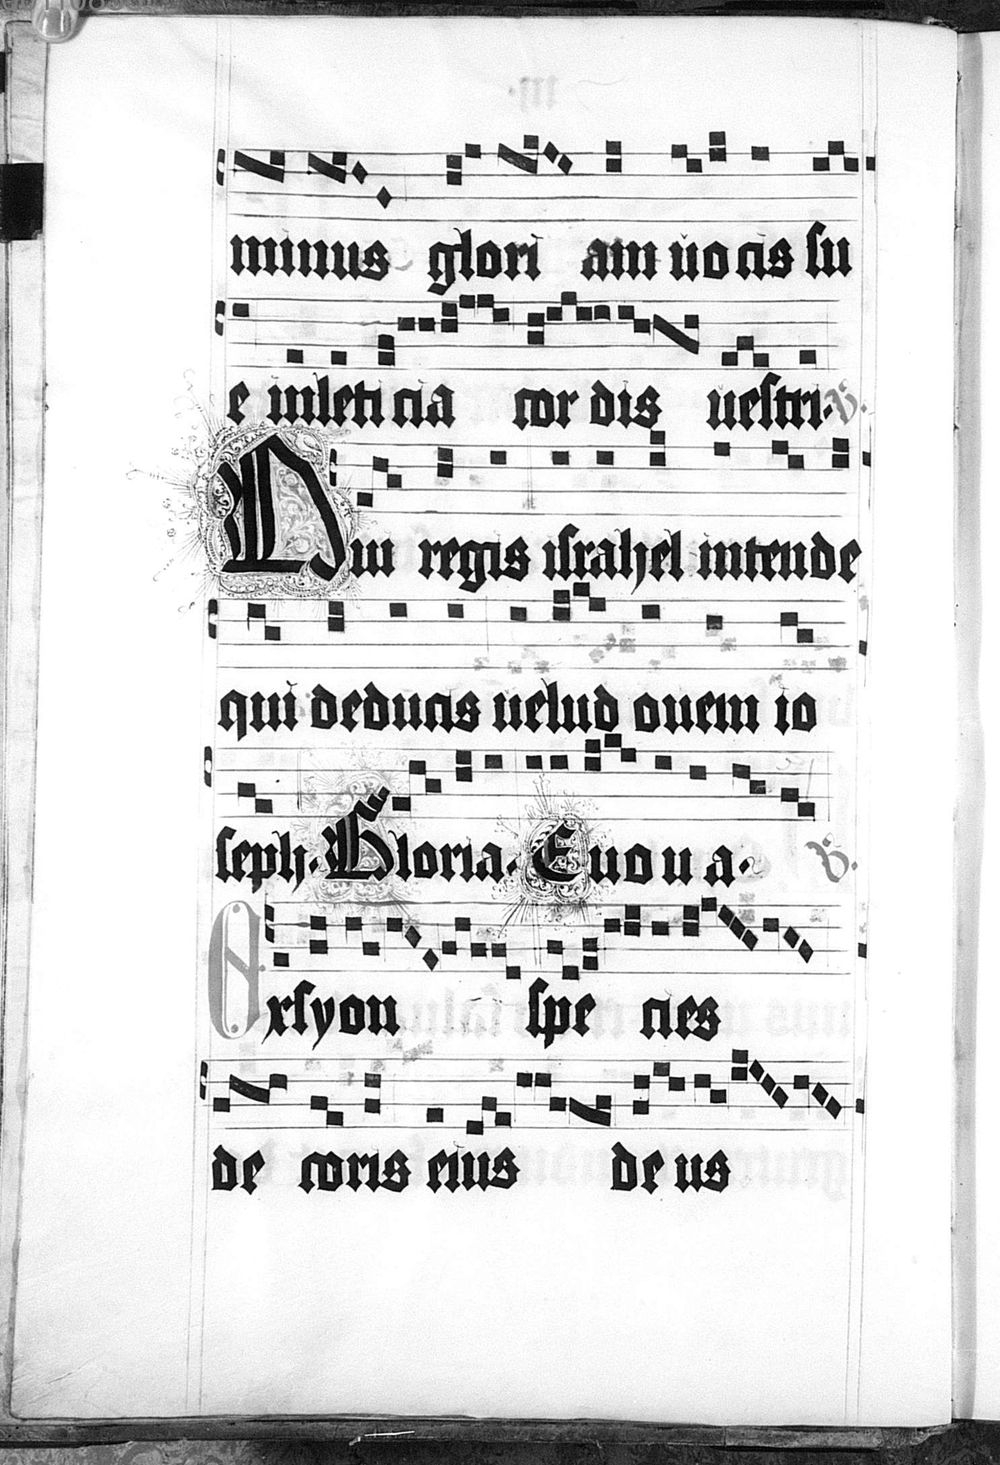 minus glori am uocis su
e inleticia cordis uestri. V.
Qui regis israhel intende
qui deducis uelud ouem io
seph. Gloria. Euoua. V.
Exsyon spe cies
de coris eius deus